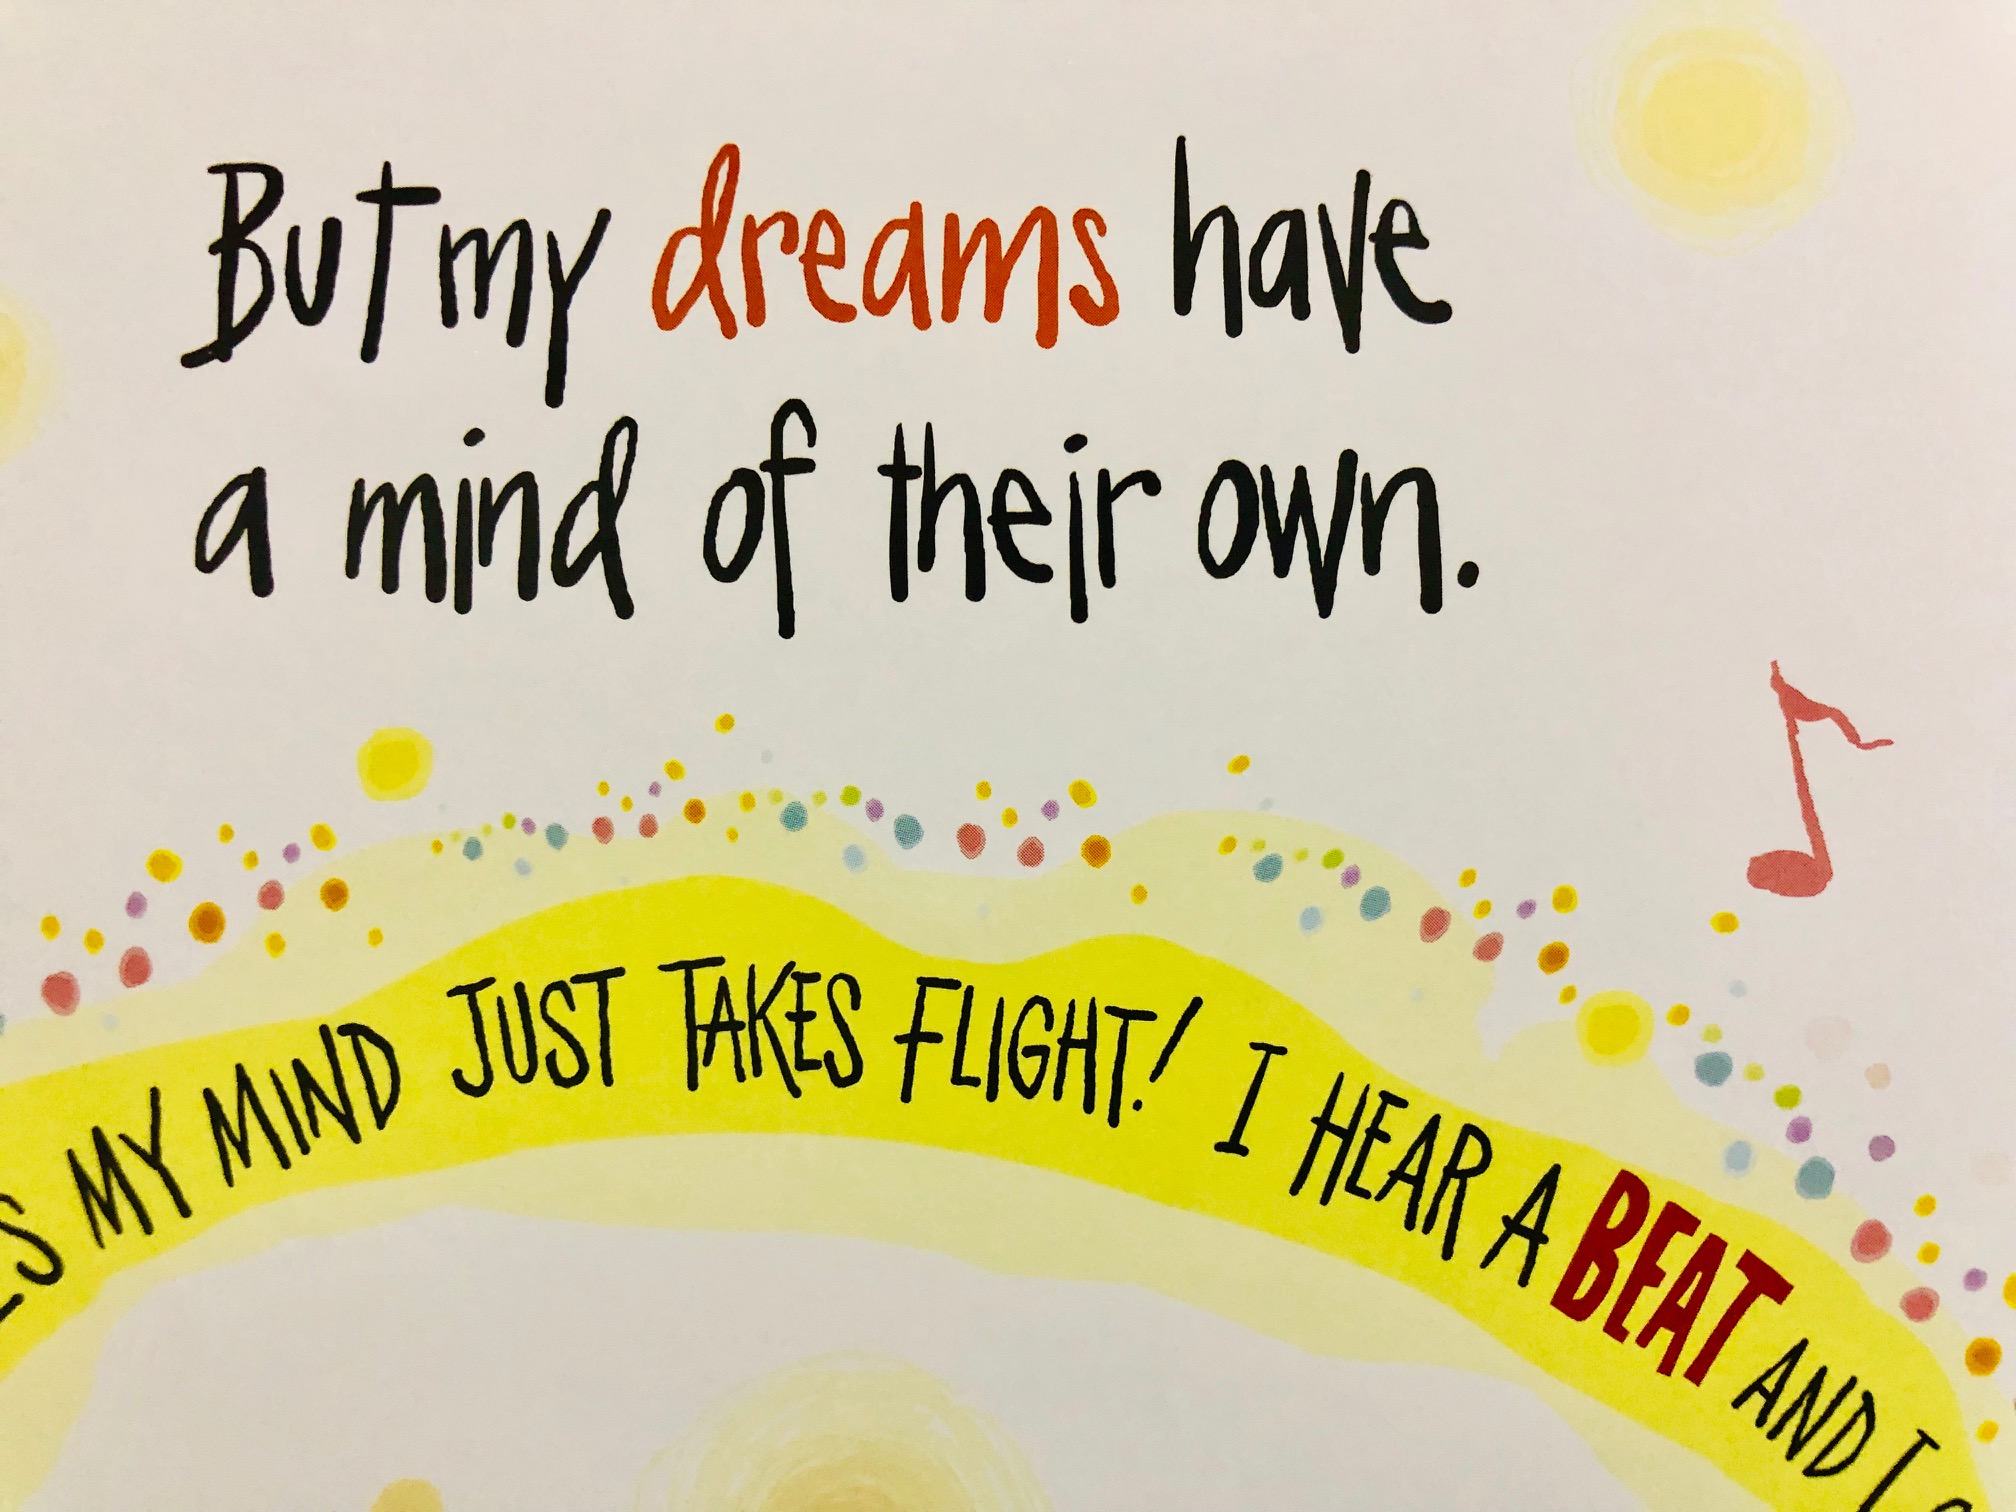 But my dreams have
a mind of their own.
MY MIND JUST TAKES FLIGHT! I HEAR A BEAT AND I